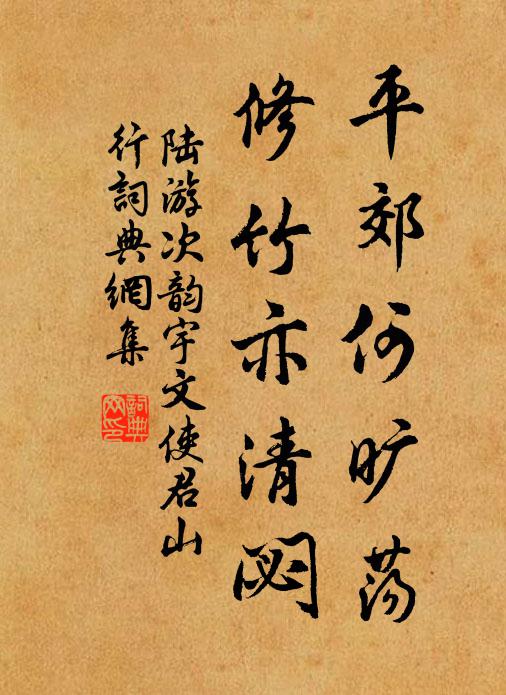 平郊何旷荡
修竹亦清閟
陆游次韵宇文使君山
行詞典網集
詞典
网印